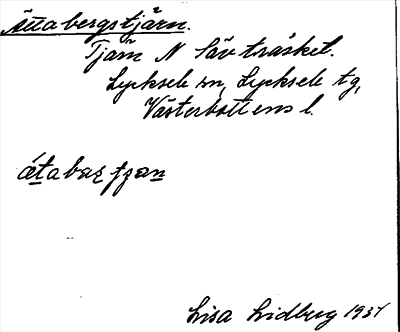 Åttabergstjärn.
Tjärn N Sävträsket.
Lycksele sn, Lycksele tg,
Västerbottens l.
Lisa Lidberg 1937